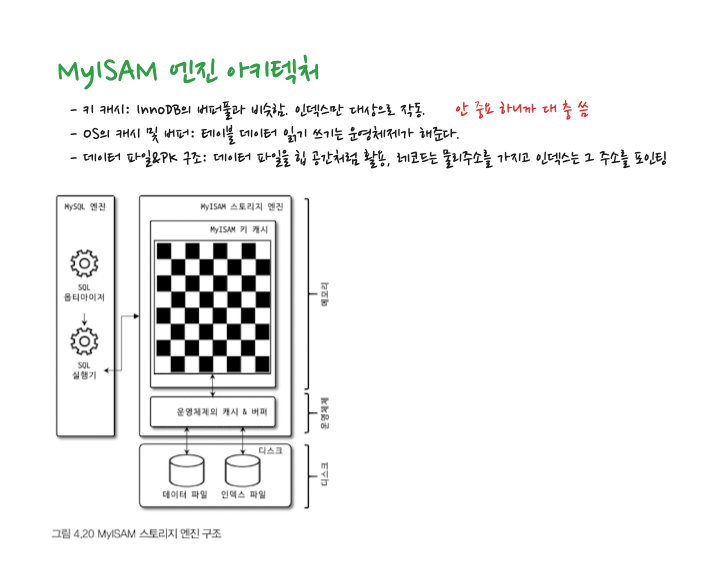 MyISAM 엔진 아키텍처
- 키 캐시: InnoDB의 버퍼풀과 비슷함. 인덱스만 대상으로 작동. 안 중요 하니까 대 충 씀
- OS의 캐시 및 버퍼: 테이블 데이터 읽기 쓰기는 운영체제가 해준다.
- 데이터 파일&PK 구조: 데이터 파일을 힙 공간처럼 활용, 레코드는 물리주소를 가지고 인덱스는 그 주소를 포인팅
MySQL 엔진
SQL
옵티마이저
SQL
실행기
MyISAM 스토리지 엔진
MyISAM 키 캐시
운영체제의 캐시 & 버퍼
디스크
데이터 파일
인덱스 파일
메모리
운영체제
디스크
그림 4.20 MyISAM 스토리지 엔진 구조